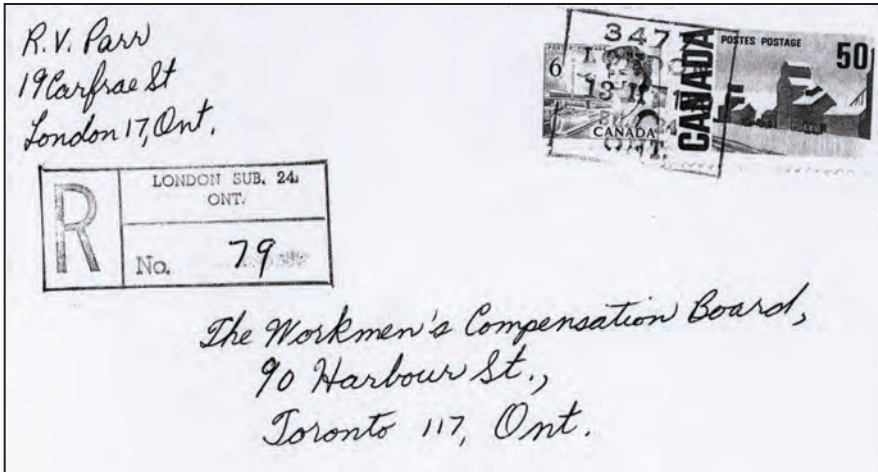 R. V. Parr
19 Carfrae St
London 17, Ont.
347
13 II
POSTES POSTAGE
50
6
CANADA
CANADA
R
LONDON SUB. 24,
ONT.
No. 79
The Workmen's Compensation Board,
90 Harbour St.,
Toronto 117, Ont.